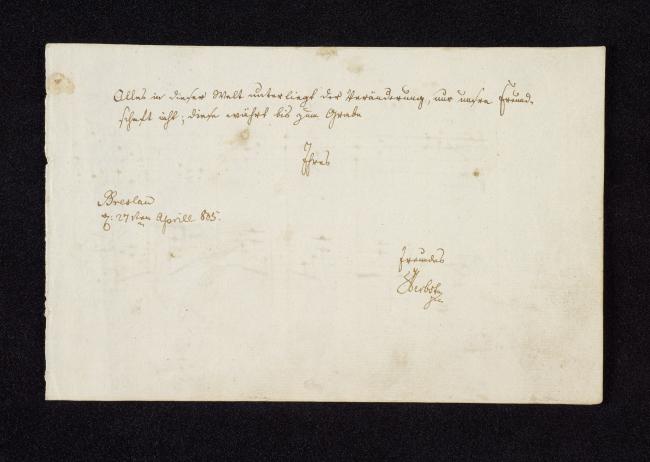 Alles in dieser Welt unterliegt der Veränderung, nur unsre Freund-
schaft nicht; diese währt bis zum Grabe
Ihres
Breslau
d: 27sten Aprill 805.
Freundes
Herbst